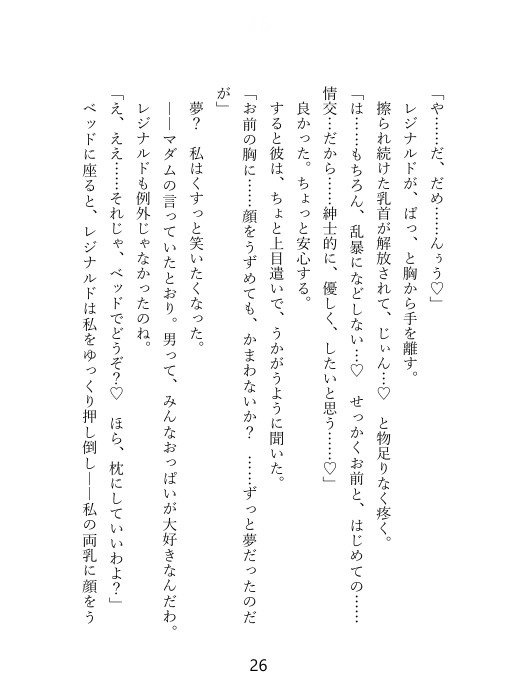 「や……だ、だめ……んぅう♡」
レジナルドが、ぱっ、と胸から手を離す。
擦られ続けた乳首が解放されて、じぃん…♡　と物足りなく疼く。
「は……もちろん、乱暴になどしない…♡　せっかくお前と、はじめての……
情交…だから……紳士的に、優しく、したいと思う……♡」
良かった。ちょっと安心する。
すると彼は、ちょっと上目遣いで、うかがうように聞いた。
「お前の胸に……顔をうずめても、かまわないか？　……ずっと夢だったのだ
が」
夢？　私はくすっと笑いたくなった。
――マダムの言っていたとおり。男って、みんなおっぱいが大好きなんだわ。
レジナルドも例外じゃなかったのね。
「え、ええ……それじゃ、ベッドでどうぞ？♡　ほら、枕にしていいわよ？」
ベッドに座ると、レジナルドは私をゆっくり押し倒し――私の両乳に顔をう
26